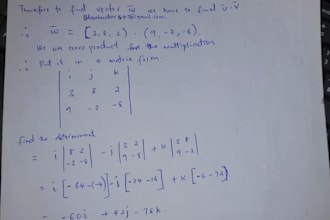 Therefore to find vector w̄ we have to find ū·v̄
∴ w̄ = [3, 8, 2] · (9, -2, -8)
We use cross product for the multiplication
∴ Put it in a matrix form.
| i j k |
| 3 8 2 |
| 9 -2 -8 |
find the determinant
= i |8 2 -2 -8| - j |3 2 9 -8| + k |3 8 9 -2|
= i [-64-(-4)] - j [-24-18] + k [-6-72]
= -60i + 42j - 78k